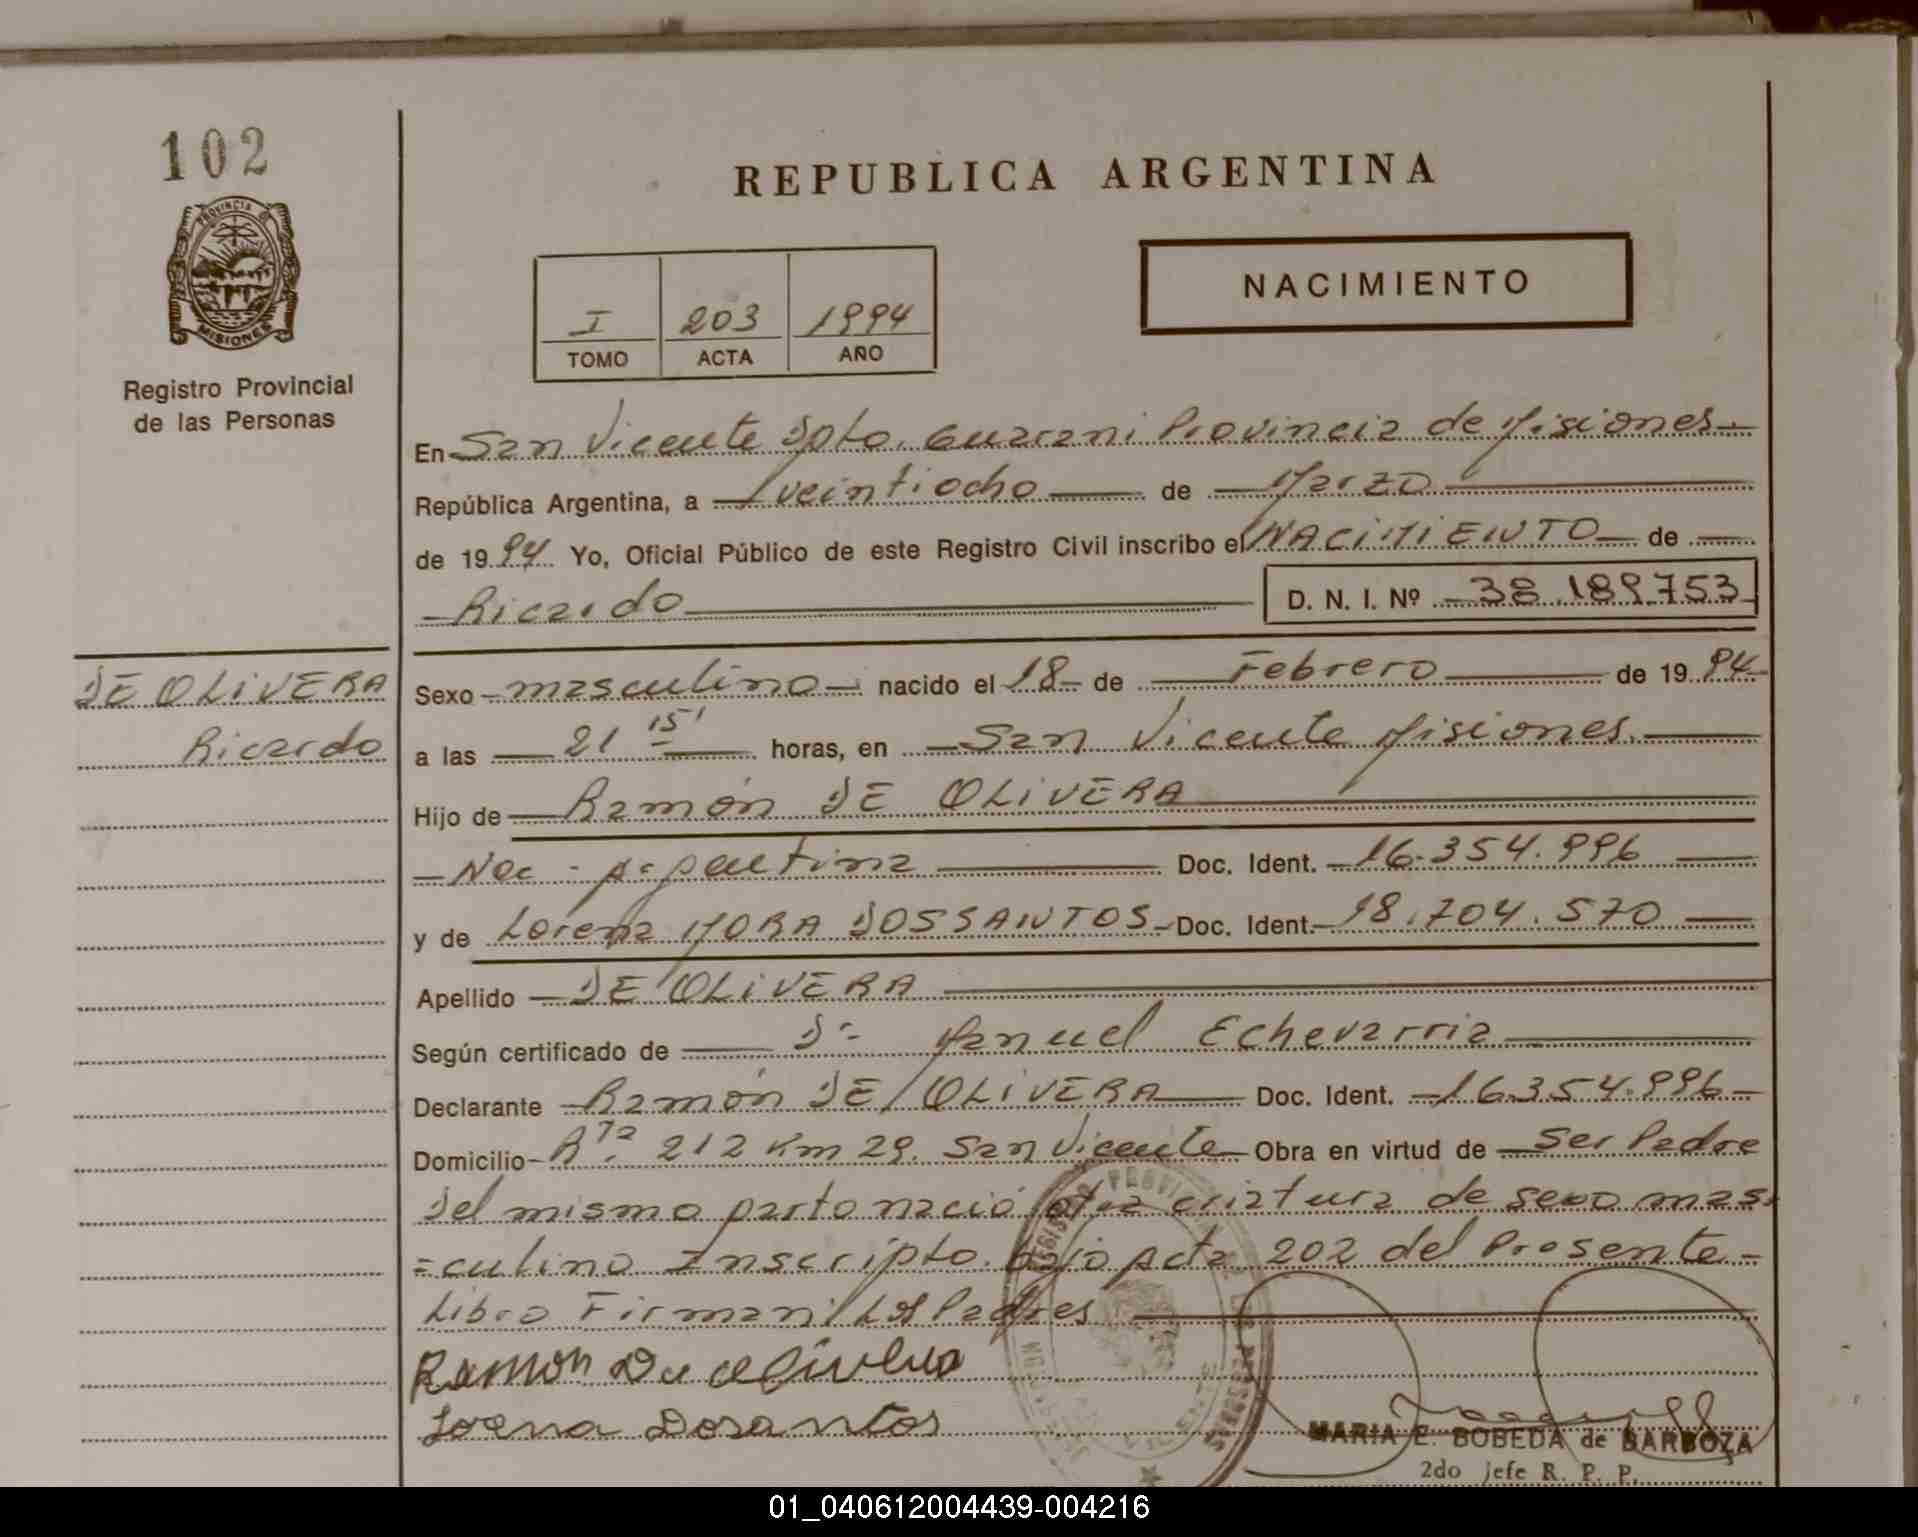 102
PROVINCIA DE
MISIONES
Registro Provincial
de las Personas
REPUBLICA ARGENTINA
I 203 1994
TOMO ACTA AÑO
NACIMIENTO
En San Vicente Dpto. Guarani Provincia de Misiones
República Argentina, a veintiocho de Marzo
de 1994 Yo, Oficial Público de este Registro Civil inscribo el NACIMIENTO de
Ricardo D. N. I. Nº 38.189.753
DE OLIVERA
Ricardo
Sexo masculino nacido el 18 de Febrero de 1994
a las 21 15' horas, en San Vicente Misiones.
Hijo de Ramón DE OLIVERA
Nac. Argentina Doc. Ident. 16.354.996
y de Lorena MORA DOSSANTOS Doc. Ident. 18.704.570
Apellido DE OLIVERA
Según certificado de Dr Manuel Echevarria
Declarante Ramón DE OLIVERA Doc. Ident. 16.354.996
Domicilio Rta. 212 Km 29. San Vicente Obra en virtud de Ser Padre
Del mismo parto nació otra criatura de sexo mas
=culino Inscripto bajo Acta 202 del Presente
Libro Firman Los Padres
Ramon De olivera
Lorena Dosantos
MARIA E. BOBEDA de BARBOZA
2do Jefe R. P. P.
01_040612004439-004216